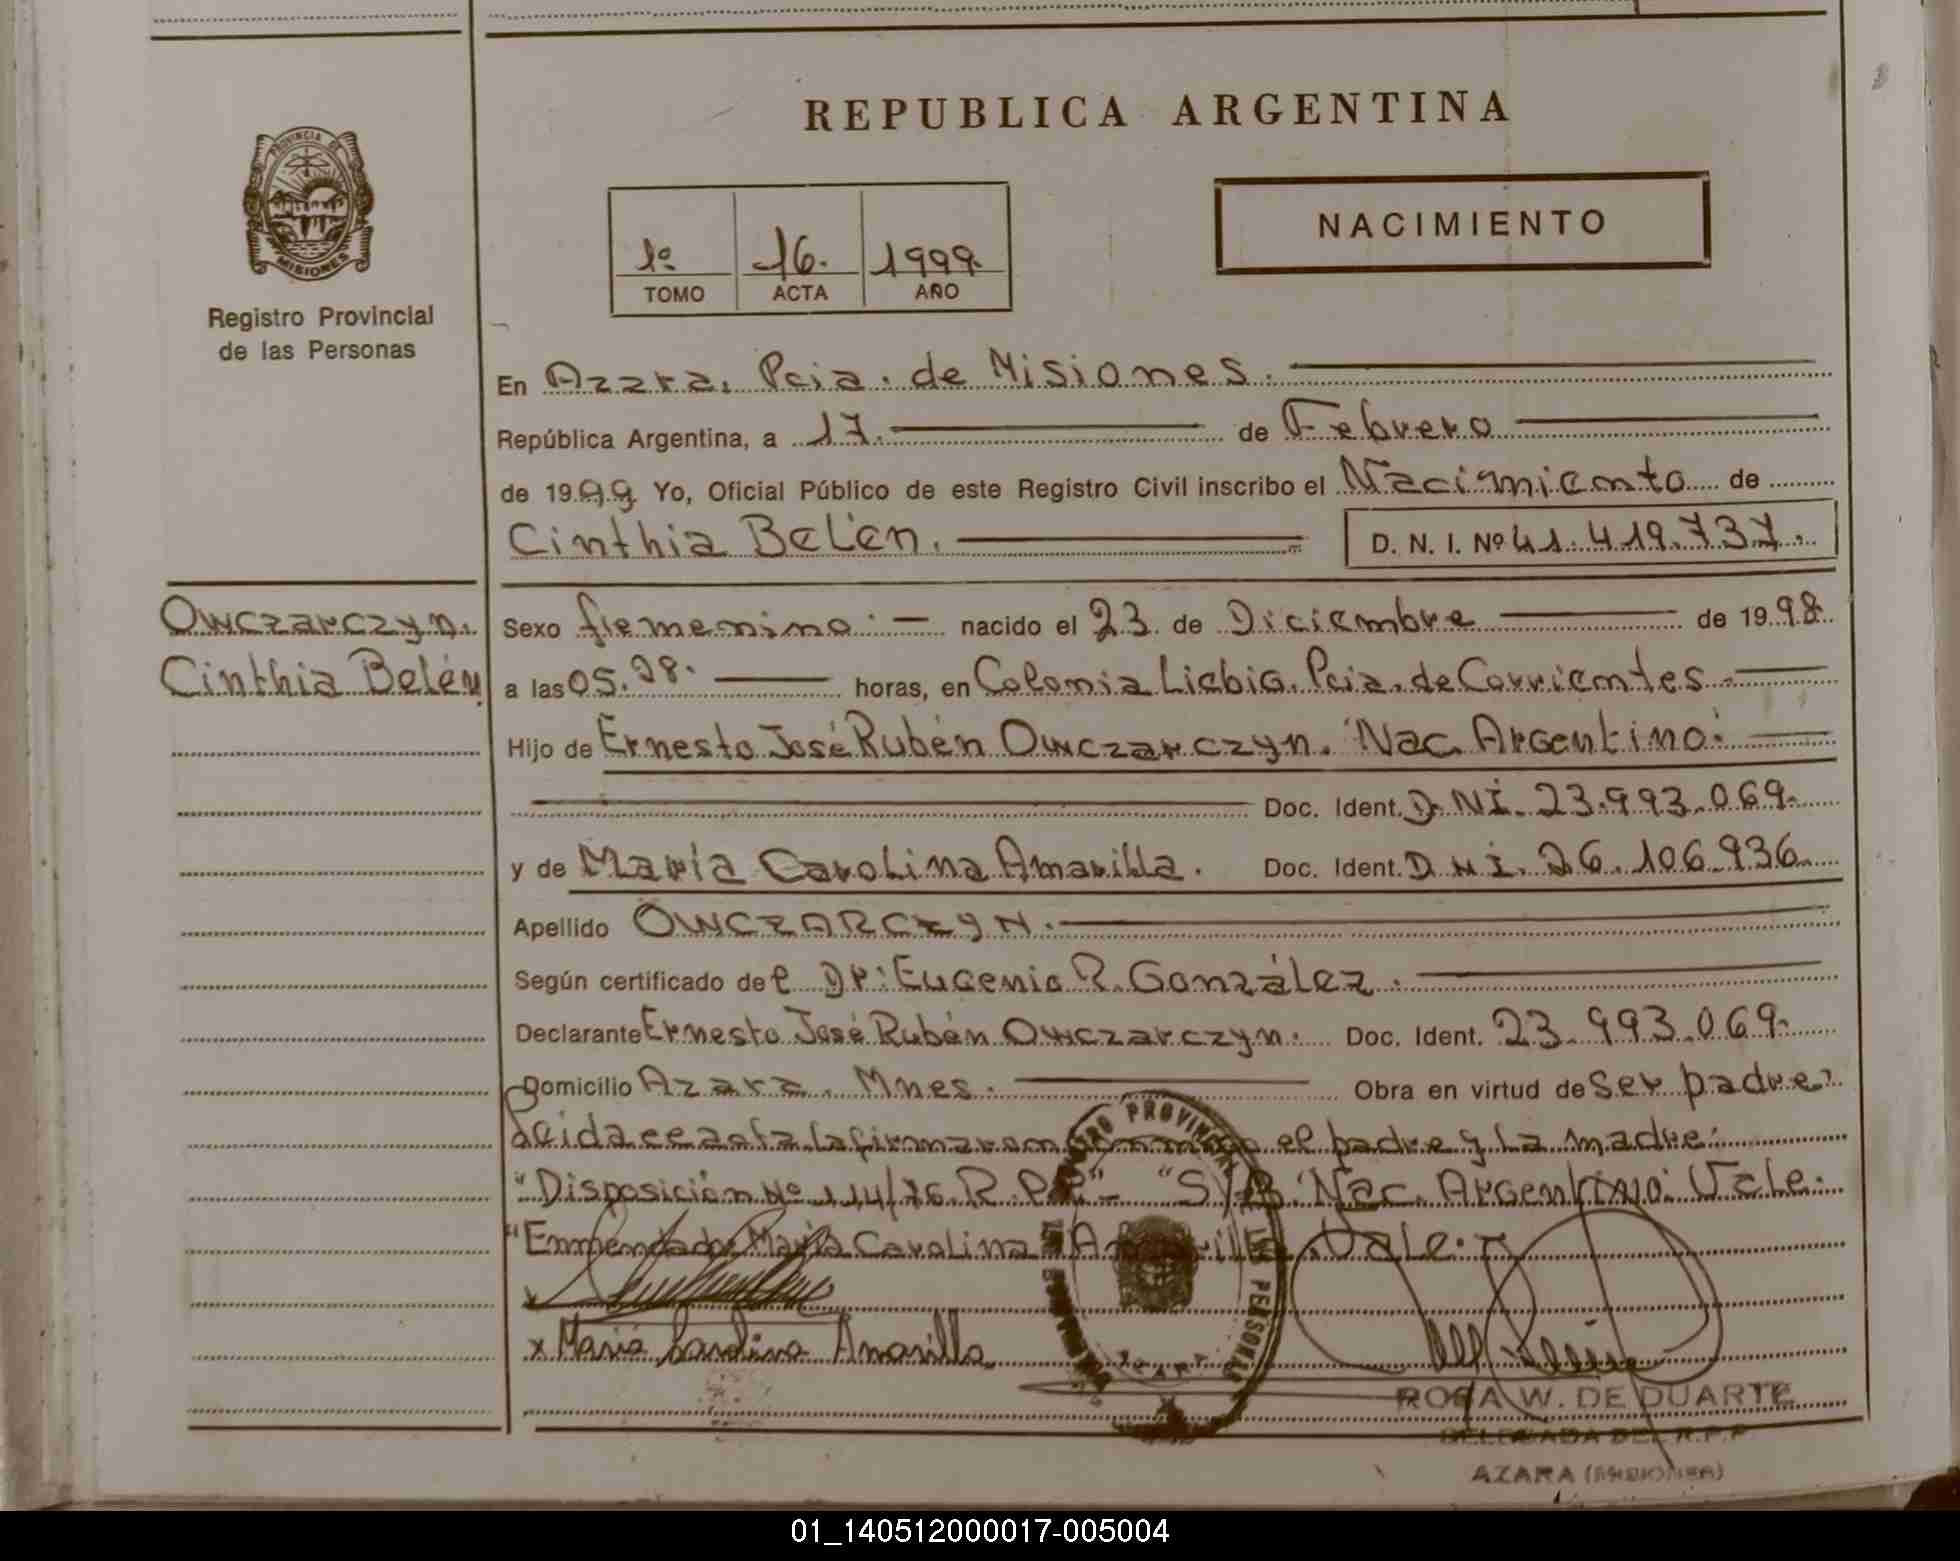 REPUBLICA ARGENTINA
PROVINCIA DE
MISIONES
Registro Provincial
de las Personas
1º 16. 1999.
TOMO ACTA AÑO
NACIMIENTO
En Azara, Pcia. de Misiones.
República Argentina, a 17. de Febrero
de 1999 Yo, Oficial Público de este Registro Civil inscribo el Nacimiento de
Cinthia Belén. D. N. I. Nº 41.419.737.
Owczarczyn.
Cinthia Belén
Sexo femenino. nacido el 23 de Diciembre de 1998.
a las 05.28. horas, en Colonia Liebig. Pcia. de Corrientes.
Hijo de Ernesto José Rubén Owczarczyn. Nac. Argentino.
Doc. Ident. D.N.I. 23.993.069.
y de María Carolina Amarilla. Doc. Ident. D.N.I. 26.106.936
Apellido OWCZARCZYN.
Según certificado del Dr. Eugenio R. González.
Declarante Ernesto José Rubén Owczarczyn. Doc. Ident. 23.993.069.
Domicilio Azara. Mnes. Obra en virtud de ser padre.
Leida el acta la firmaron conmigo el padre y la madre.
"Disposición Nº 114/76.R.P.P."- "S/R. Nac. Argentino. Vale.
"Enmendado María Carolina Amarilla. Vale.
x
x María Carolina Amarilla
ROSA W. DE DUARTE
DELEGADA DEL R.P.P
AZARA (MISIONES)
01_140512000017-005004